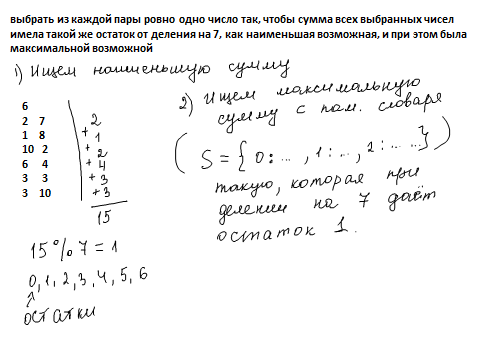 выбрать из каждой пары ровно одно число так, чтобы сумма всех выбранных чисел
имела такой же остаток от деления на 7, как наименьшая возможная, и при этом была
максимальной возможной
1) Ищем наименьшую сумму
6
2 7
1 8
10 2
6 4
3 3
3 10
2
+ 1
+ 2
+ 4
+ 3
+ 3
15
15 % 7 = 1
0, 1, 2, 3, 4, 5, 6
остатки
2) Ищем максимальную
сумму с пом. словаря
( S = { 0: ... , 1: ... , 2: ... ... } )
такую, которая при
делении на 7 даёт
остаток 1.